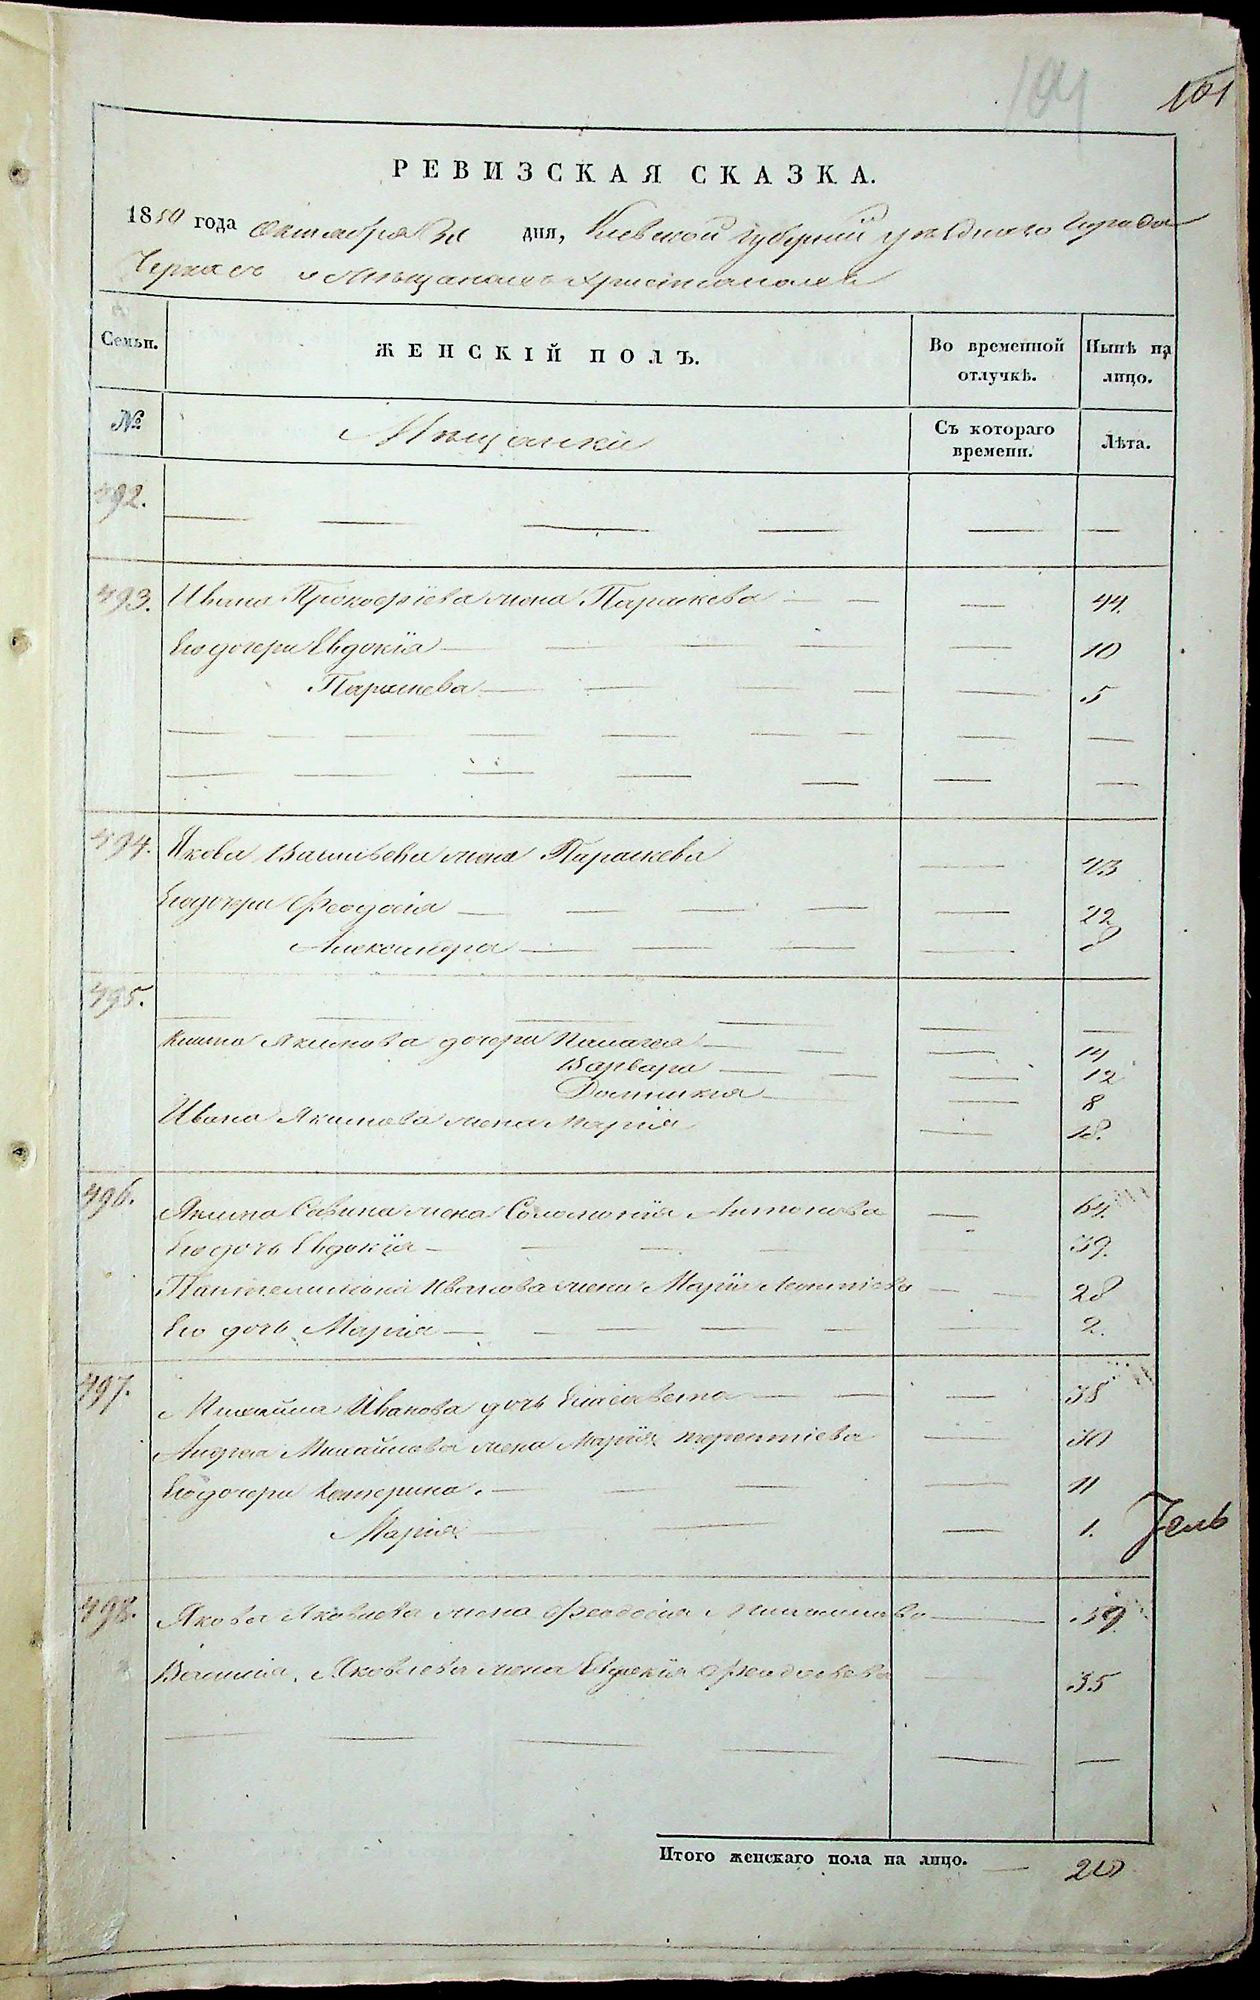 104
101
РЕВИЗСКАЯ СКАЗКА.
1850 года Октября 31 дня, Киевской губерніи уѣзднаго города
Черкасъ о Мѣщанахъ Христіанахъ
Семьи. ЖЕНСКІЙ ПОЛЪ. Во временной отлучкѣ. Нынѣ на лицо.
№ Мѣщанки Съ котораго времени. Лѣта.
492.
493. Ивана Прокофіева жена Параскева 44.
Его дочери Евдокія 10
Параскева 5
494. Якова Васильева жена Параскева 43
Его дочери Феодосія 22
Александра 8
495.
Якимова дочери Палагея 14
Варвара 12
Домникия 8
Ивана Якимова жена Марія 18.
496. Якима Савина жена Соломонія Антонова 64.
Его дочь Евдокія 39.
Пантелимона Иванова жена Марія Леонтіева 28
Его дочь Марія 2.
497. Михайла Иванова дочь Елисавета 38
Андрея Михайлова жена Марія терентіева 30
Его дочери Катерина. 11
Марія 1.
498. Якова Яковлева жена Феодосія 59
Василія Яковлева жена Евдокія Феодосьева 35
Итого женскаго пола на лицо. 20